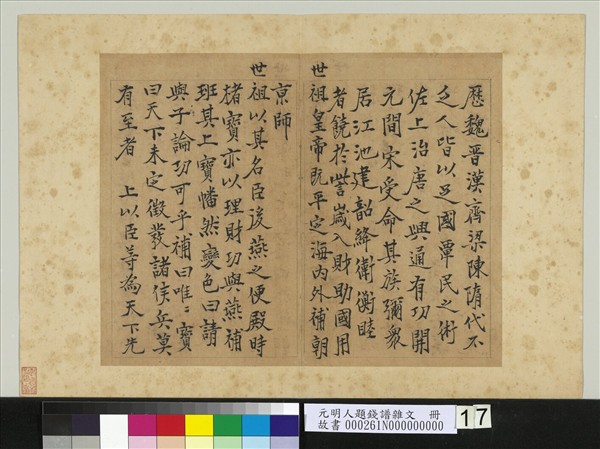 歷魏晋漢齊梁陳隋代不
乏人皆以足國覃民之術
佐上治唐之興通有功開
元間宋受命其族彌衆
居江池建韶絳衛衡睦
者饒於訾歲入財助國用
世祖皇帝既平定海內外補朝
京師
世祖以其名臣後燕之便殿時
楮寳亦以理財功與燕補
班其上寳幡然變色曰請
與子論功可乎補曰唯〻寳
曰天下未定徵發諸侯兵莫
有至者 上以臣等為天下先
元明人題錢譜雜文 冊
故書 000261N000000000
17